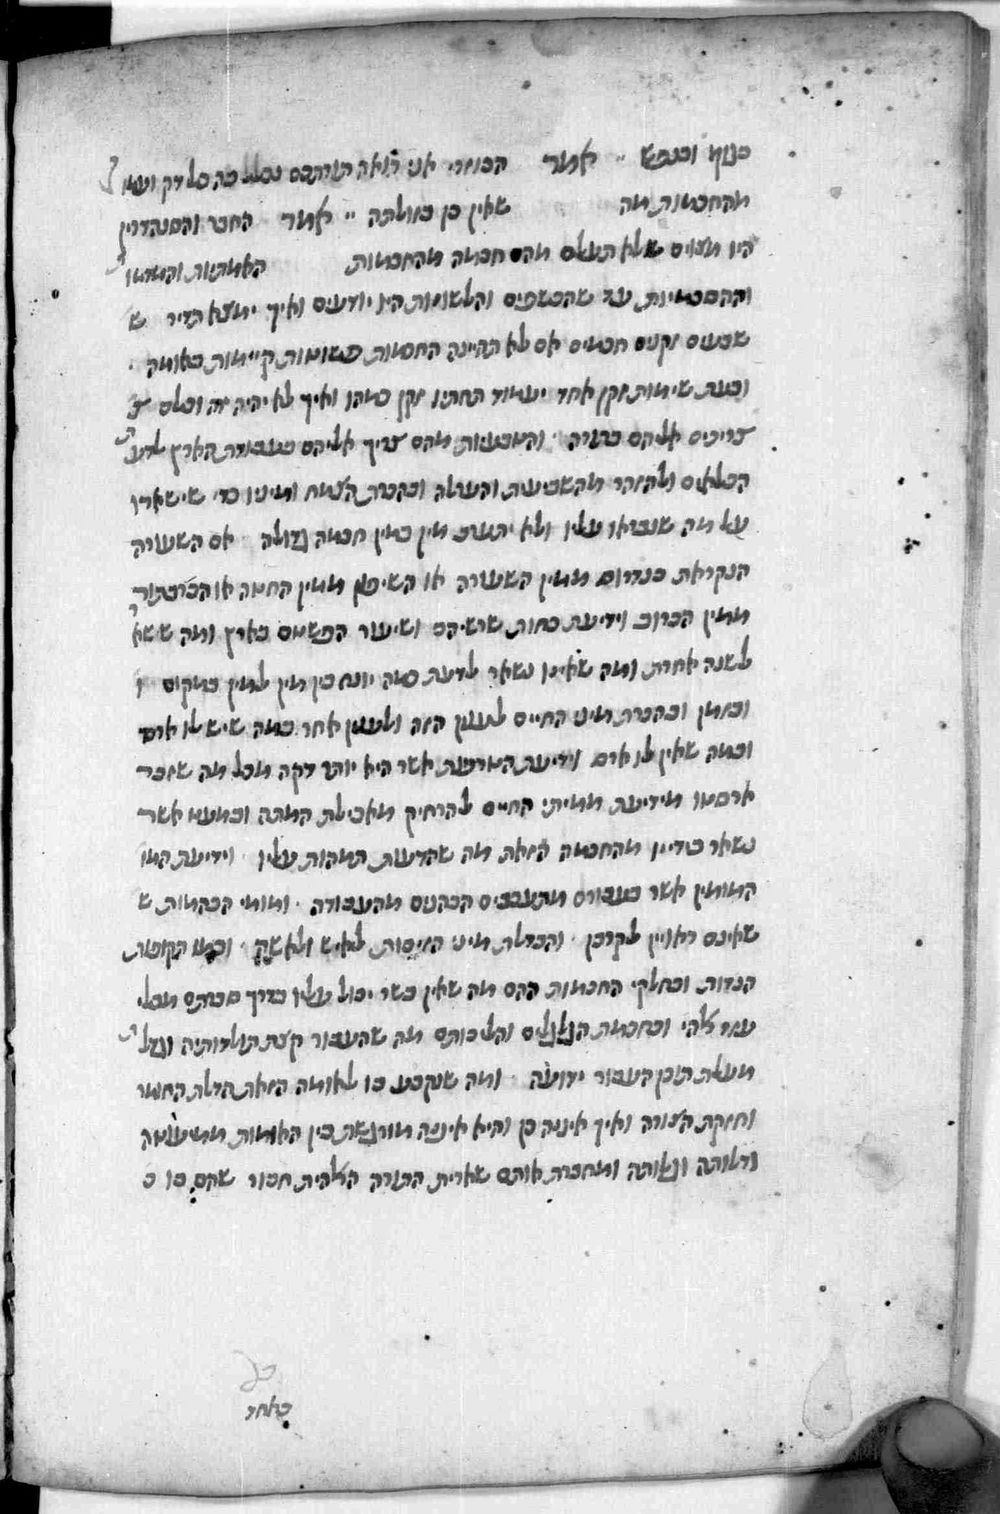 בגוף ובנפש ״ אמר הכוזרי אני רואה תורתכם נכלל בה כל דק ועמו
מהחכמות מה שאין כן בזולתה ״ אמר החבר והסנהדרין
היו מצוים שלא תעלם מהם חכמה מהחכמות האמתיות והדמיו
וההסכמיות עד שהכשפים והלשונות היו יודעים ואיך ימצא תדיר ש
שבעים זקנים חכמים אם לא תהיינה החכמות פשוטות קיימות באומה ׳
ובעת שימות זקן אחד יעמוד תחתיו זקן כמהו ואיך לא יהיה זה וכלם צ
צריכים אליהם בתורה ׳ והטבעיות מהם צריך אליהם בעבודת הארץ לדע
הכלאים ולהזהר מהשביעית והערלה ובהכרת הצמח ומיניו כדי שישארו
על מה שנבראו עליו ולא יתערב מין במין חכמה גדולה ׳ אם השעורה
הנקראת כנדרוס ממין השעורה או השיפון ממין החטה או הכרבתור
ממין הכרוב וידיעת כחות שרשיהם ושיעור הפשטם בארץ ומה ששא
לשנה אחרת ומה שאינו נשאר לדעת כמה יונח בין מין למין במקום ו
ובזמן ובהכרת מיני החיים לענין הזה ולענין אחר במה שיש לו ארס
ובמה שאין לו ארס וידיעת הטרפות אשר היא יותר דקה מכל מה שזכר
ארסטו מידיעת ממיתי החיים להרחיק מאכילת המתה ובמעט אשר
נשאר בידינו מהחכמה הזאת מה שהדעות תמהות עליו ׳ וידיעת המו
המומין אשר בעבורם מתעכבים הכהנים מהעבודה ׳ ומומי הבהמות ש
שאינם ראויין לקרבן ׳ והבדלת מיני הזיבות לאיש ולאשה ׳ וכמו תקופות
הנדות ובחלקי החכמות ההם מה שאין בשר יכול עליו בדרך סברתם מבלי
עזר אלהי ובחכמת הגלגלים והליכותם מה שהעבור קצת תולדותיה וגדל
מעלת תוכן העבור ידועה ׳ ומה שנקבע בו לאומה הזאת הדלת החמר
וחזקת הצורה ואיך אינה כן והיא איננה מורגשת בין האומות ממיעוטה
ודלותה וגלותה ומחברת אותם שארית התורה האלהית חבור שהם בו כ
כאחד